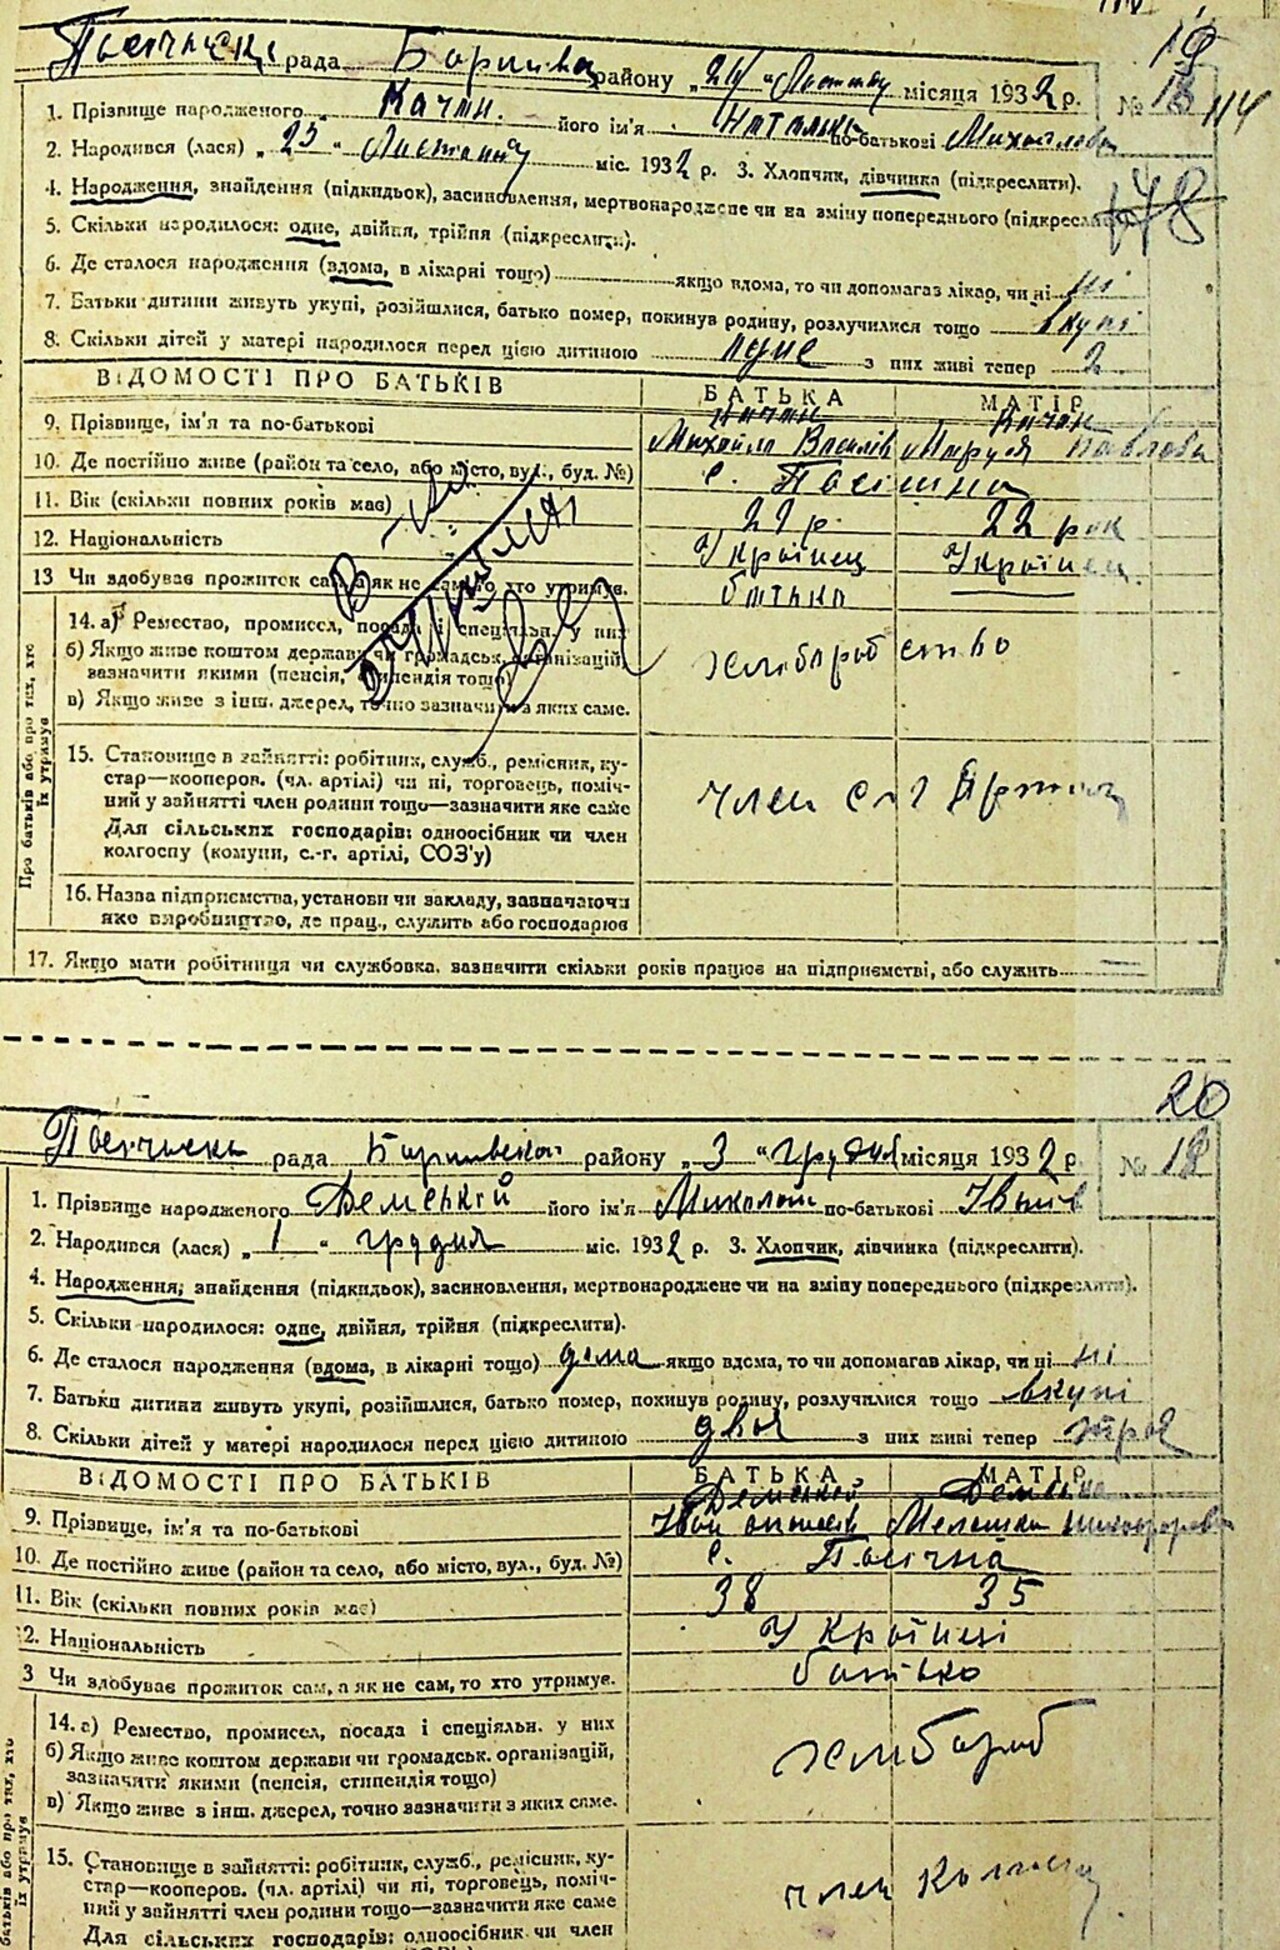 рада району „24“ місяця 1932 р. 19
1. Прізвище народженого Качан. його ім'я по-батькові № 114
2. Народився (лася) „23“ міс. 1932 р. 3. Хлопчик, дівчинка (підкреслити).
4. Народження, знайдення (підкидьок), засиновлення, мертвонароджене чи на зміну попереднього (підкреслити). 178
5. Скільки народилося: одне, двійня, трійня (підкреслити).
6. Де сталося народження (вдома, в лікарні тощо) якщо вдома, то чи допомагав лікар, чи ні ні
7. Батьки дитини живуть укупі, розійшлися, батько помер, покинув родину, розлучилися тощо вкупі
8. Скільки дітей у матері народилося перед цією дитиною одне з них живі тепер 2
ВІДОМОСТІ ПРО БАТЬКІВ БАТЬКА МАТІР
9. Прізвище, ім'я та по-батькові Качан Михайло Василів Качан Маруся Павлова
10. Де постійно живе (район та село, або місто, вул., буд. №) с.
11. Вік (скільки повних років має) 22 рок
12. Національність Українец Українец.
13 Чи здобуває прожиток сам, а як не сам, то хто утримує. батько
Про батьків або про тих, хто їх утримує
14. а) Ремество, промисел, посада і спеціяльн. у них
б) Якщо живе коштом держави чи громадськ. організацій, зазначити якими (пенсія, стипендія тощо) хліборобство
в) Якщо живе з інш. джерел, точно зазначити з яких саме.
15. Становище в зайнятті: робітник, служб., ремісник, ку-
стар—кооперов. (чл. артілі) чи ні, торговець, поміч-
ний у зайнятті член родини тощо—зазначити яке саме член
Для сільських господарів: одноосібник чи член
колгоспу (комуни, с.-г. артілі, СОЗ'у)
16. Назва підприємства, установи чи закладу, зазначаючи
яке виробництво, де прац., служить або господарює
17. Якщо мати робітниця чи службовка, зазначити скільки років працює на підприємстві, або служить
20
рада району „3“ грудня місяця 1932 р. № 18
1. Прізвище народженого його ім'я Миколай по-батькові
2. Народився (лася) „1“ грудня міс. 1932 р. 3. Хлопчик, дівчинка (підкреслити).
4. Народження, знайдення (підкидьок), засиновлення, мертвонароджене чи на зміну попереднього (підкреслити).
5. Скільки народилося: одне, двійня, трійня (підкреслити).
6. Де сталося народження (вдома, в лікарні тощо) дома якщо вдома, то чи допомагав лікар, чи ні ні
7. Батьки дитини живуть укупі, розійшлися, батько помер, покинув родину, розлучилися тощо вкупі
8. Скільки дітей у матері народилося перед цією дитиною двоє з них живі тепер троє
ВІДОМОСТІ ПРО БАТЬКІВ БАТЬКА МАТІР
9. Прізвище, ім'я та по-батькові
10. Де постійно живе (район та село, або місто, вул., буд. №) с. Пасічна
11. Вік (скільки повних років має) 38 35
12. Національність Українці
3 Чи здобуває прожиток сам, а як не сам, то хто утримує. батько
батьків або про тих, хто їх утримує
14. а) Ремество, промисел, посада і спеціяльн. у них
б) Якщо живе коштом держави чи громадськ. організацій, хлібороб
зазначити якими (пенсія, стипендія тощо)
в) Якщо живе з інш. джерел, точно зазначити з яких саме.
15. Становище в зайнятті: робітник, служб., ремісник, ку-
стар—кооперов. (чл. артілі) чи ні, торговець, поміч- член
ний у зайнятті член родини тощо—зазначити яке саме
Для сільських господарів: одноосібник чи член